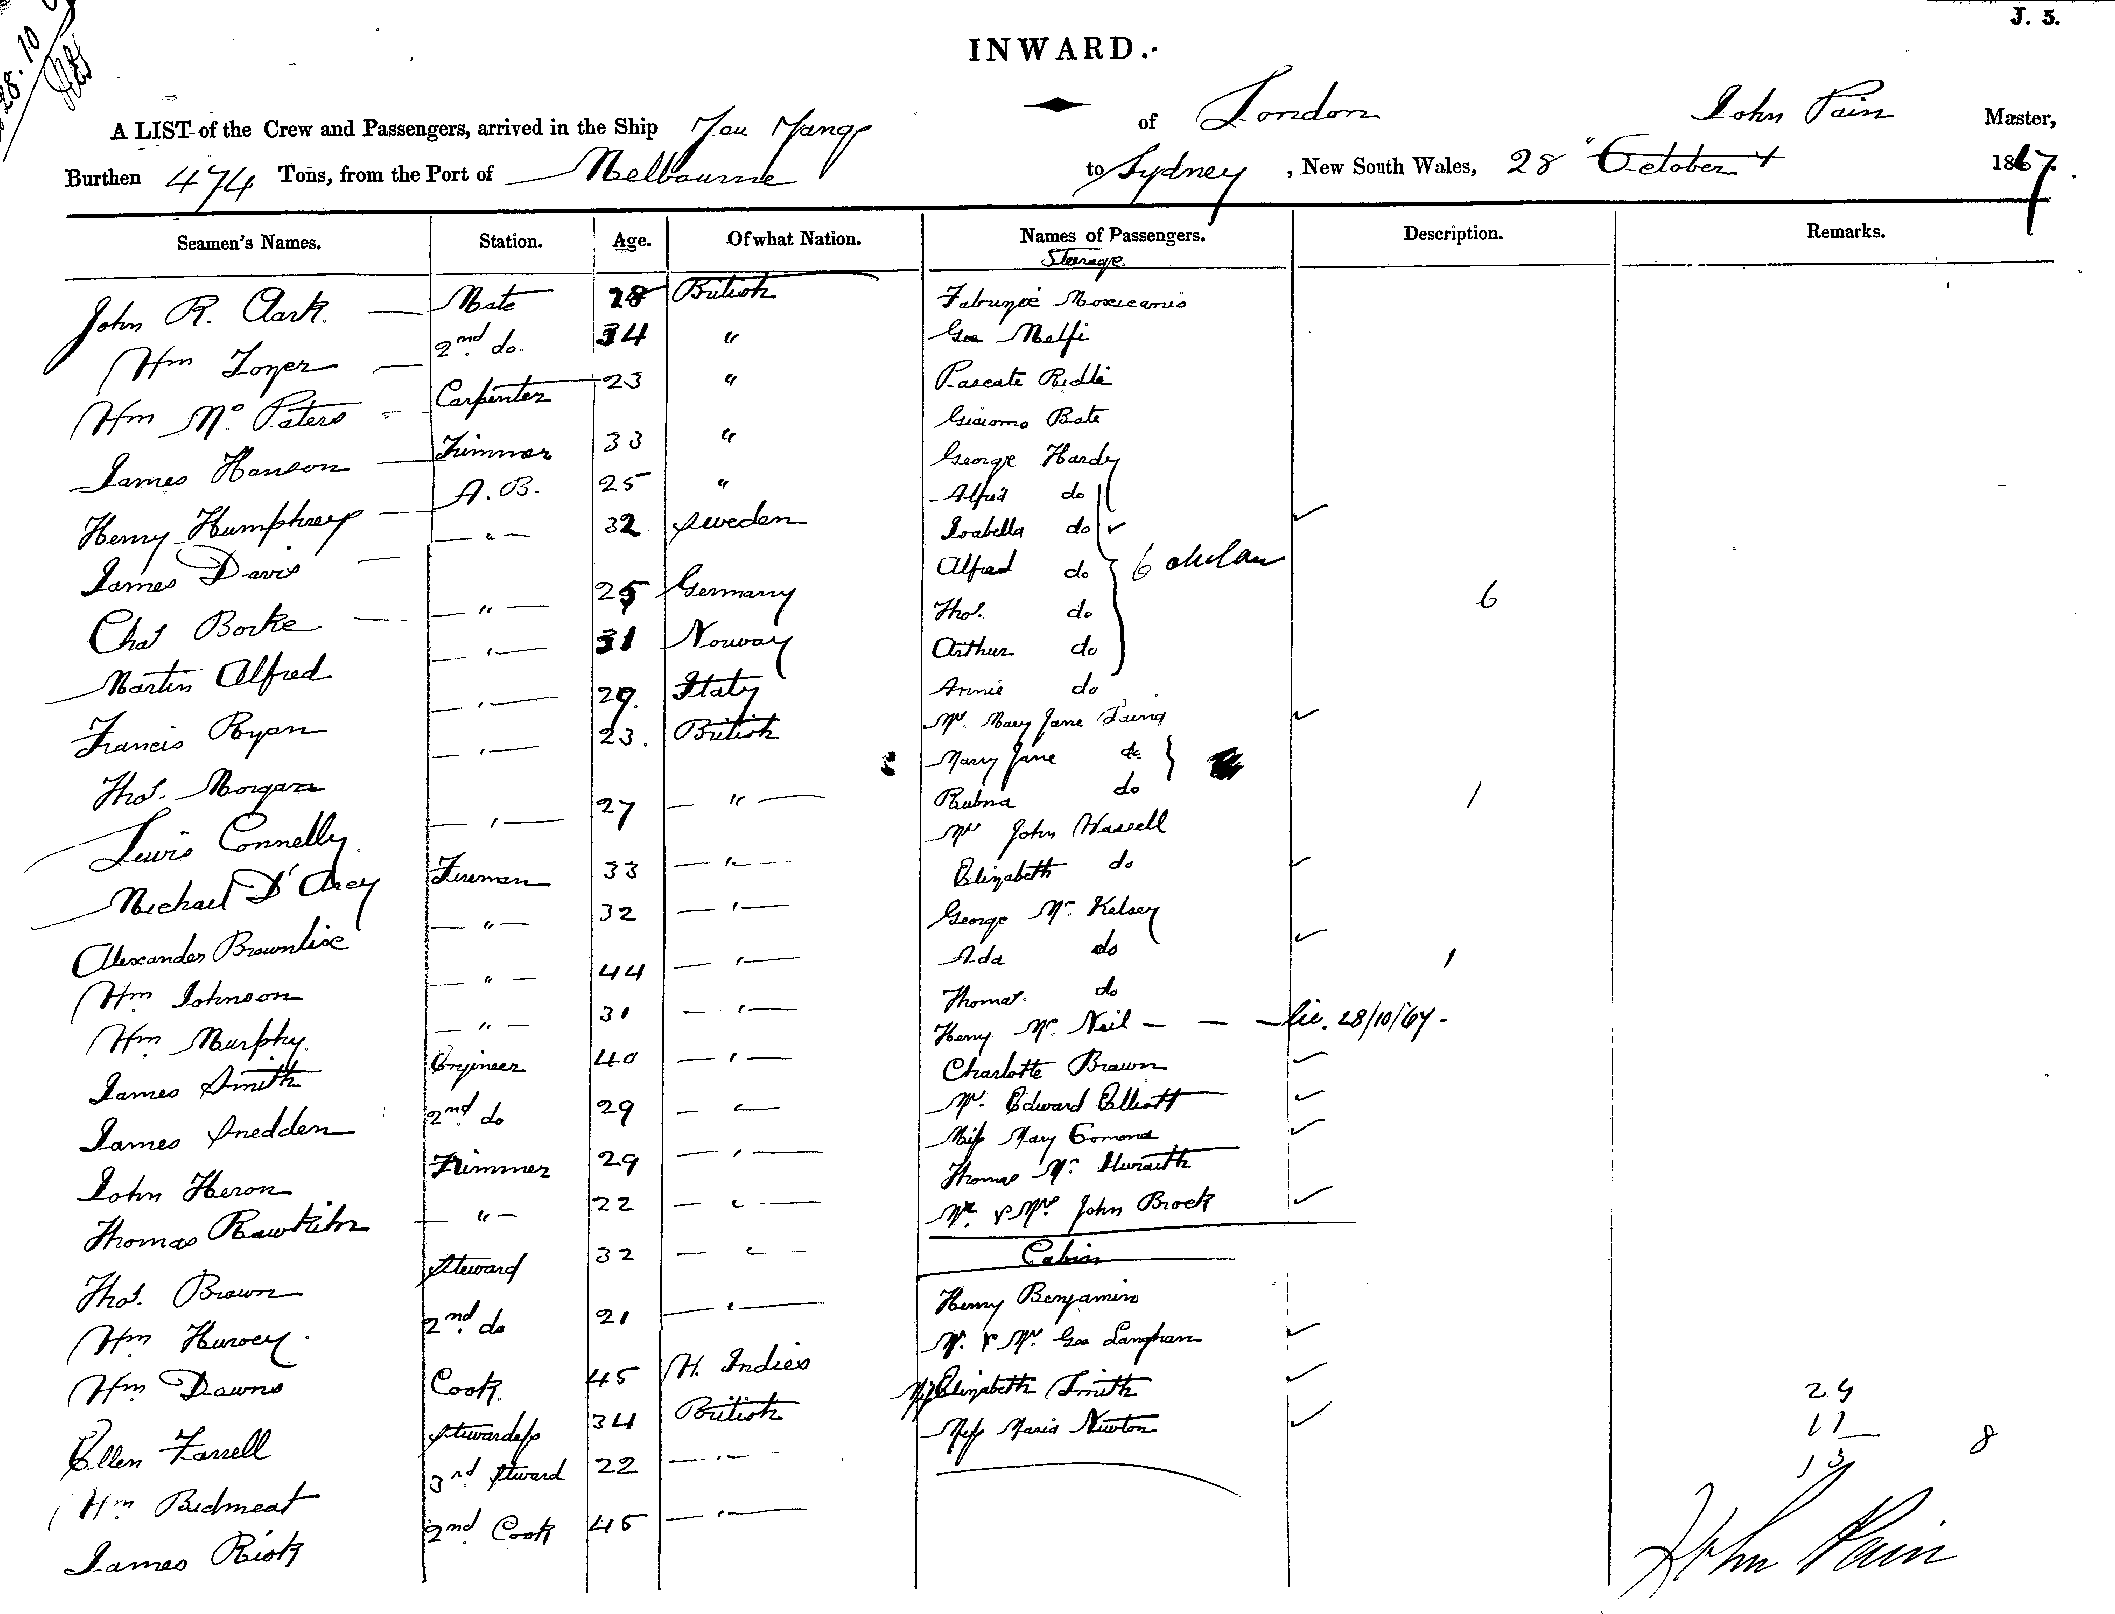 J. 5.
INWARD.
A LIST of the Crew and Passengers, arrived in the Ship You Yangs of London John Pain Master,
Burthen 474 Tons, from the Port of Melbourne to Sydney, New South Wales, 28 October 1867.
Seamen's Names. Station. Age. Of what Nation. Names of Passengers. Description. Remarks.
Steerage
John R. Clark Mate 28 British
Wm Toyer 2nd do. 34 " Geo Melfi
Wm Mc Peters Carpenter 23 "
James Hanson Trimmer 33 " Giacomo Bate
Henry Humphrey A. B. 25 " George Hardy
James Davis " 32 Sweden Alfred do
Chas Borke " 25 Germany Isabella do
Martin Alfred " 31 Norway Alfred do 6
Francis Ryan " 29. Italy Thos. do 6
Thos. Morgan " 23. British Arthur do
Lewis Connelly " 27 " Annie do
Michael D'Arcy Fireman 33 " Mrs. Mary Jane
Alexander Brownlie " 32 " Mary Jane do
Wm Johnson " 44 " do
Wm Murphy " 31 " Mr John Wassell
James Smith Engineer 40 " Elizabeth do
James Snedden 2nd do 29 " George Mc Kelsey
John Heron Trimmer 29 " Ada do
Thomas Rawkihn " 22 " Thomas do
Thos. Brown Steward 32 " Henry Mc Neil 28/10/67
Wm Harvey 2nd do 21 " Charlotte Brown
Wm Downs Cook 45 W. Indies Mr. Edward Elliott
Ellen Farrell Stewardess 34 British Miss Mary
Wm Bidmeat 3rd Steward 22 " Thomas Mc
James Risk 2nd Cook 45 " Mr & Mrs John Brock
Cabin
Henry Benjamin
Mr. & Mrs Geo Langhan
Miss Elizabeth Smith
Miss Maria Newton
24
11
13
8
John Pain